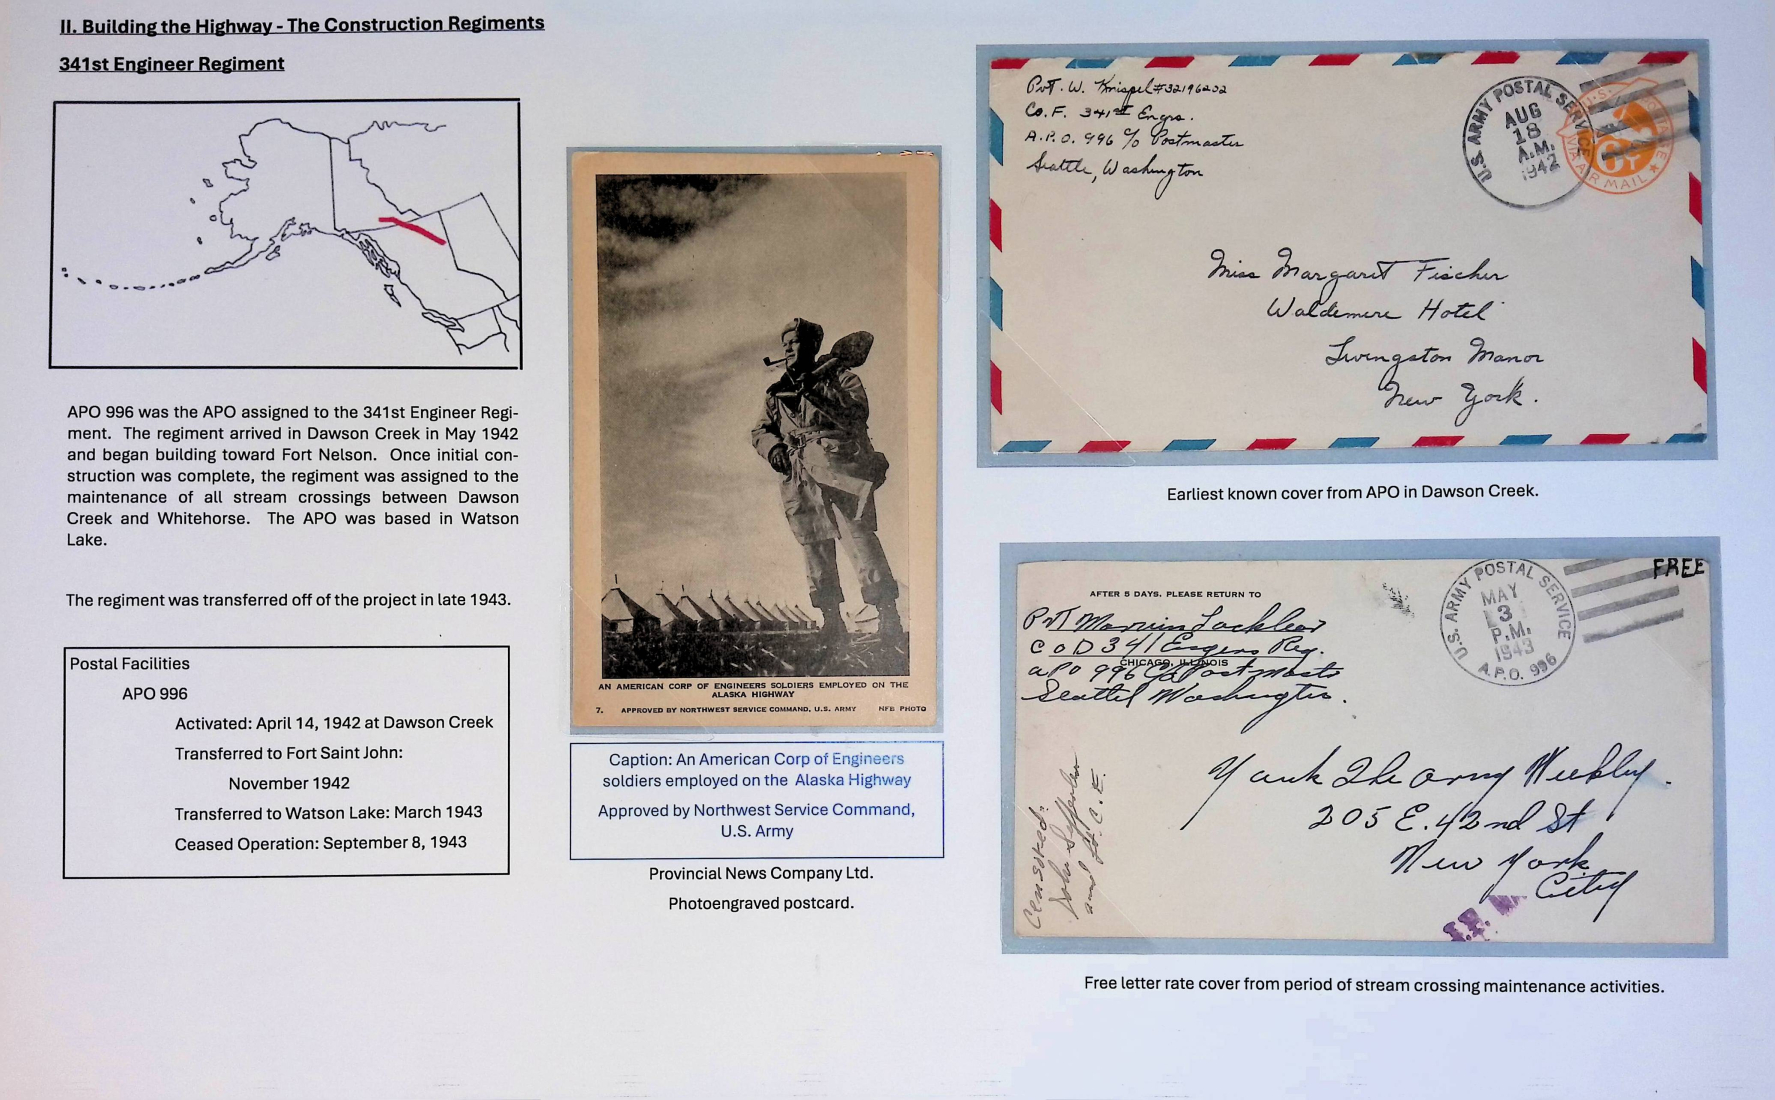 II. Building the Highway - The Construction Regiments
341st Engineer Regiment
APO 996 was the APO assigned to the 341st Engineer Regi-
ment. The regiment arrived in Dawson Creek in May 1942
and began building toward Fort Nelson. Once initial con-
struction was complete, the regiment was assigned to the
maintenance of all stream crossings between Dawson
Creek and Whitehorse. The APO was based in Watson
Lake.
The regiment was transferred off of the project in late 1943.
Postal Facilities
APO 996
Activated: April 14, 1942 at Dawson Creek
Transferred to Fort Saint John:
November 1942
Transferred to Watson Lake: March 1943
Ceased Operation: September 8, 1943
AN AMERICAN CORP OF ENGINEERS SOLDIERS EMPLOYED ON THE
ALASKA HIGHWAY
7. APPROVED BY NORTHWEST SERVICE COMMAND, U.S. ARMY NFB PHOTO
Caption: An American Corp of Engineers
soldiers employed on the Alaska Highway
Approved by Northwest Service Command,
U.S. Army
Provincial News Company Ltd.
Photoengraved postcard.
Pvt. W. Knispel #32196202
Co. F. 341st Engrs.
A.P.O. 996 c/o Postmaster
Seattle, Washington
U.S. ARMY POSTAL SERVICE
AUG
18
A.M.
1942
6¢
VIA AIR MAIL
Miss Margaret Fischer
Waldemere Hotel
Livingston Manor
New York.
Earliest known cover from APO in Dawson Creek.
AFTER 5 DAYS, PLEASE RETURN TO
Pvt Morris Locklear
Co D 341 Engers Reg.
CHICAGO, ILLINOIS
aPO 996 c/o Postmasts
Seattel Washington.
U.S. ARMY POSTAL SERVICE
MAY
3
P.M.
1943
A.P.O. 996
FREE
Yank The army Weekly.
205 E. 42nd St
New York
City
Censored:
John
C.E.
Free letter rate cover from period of stream crossing maintenance activities.